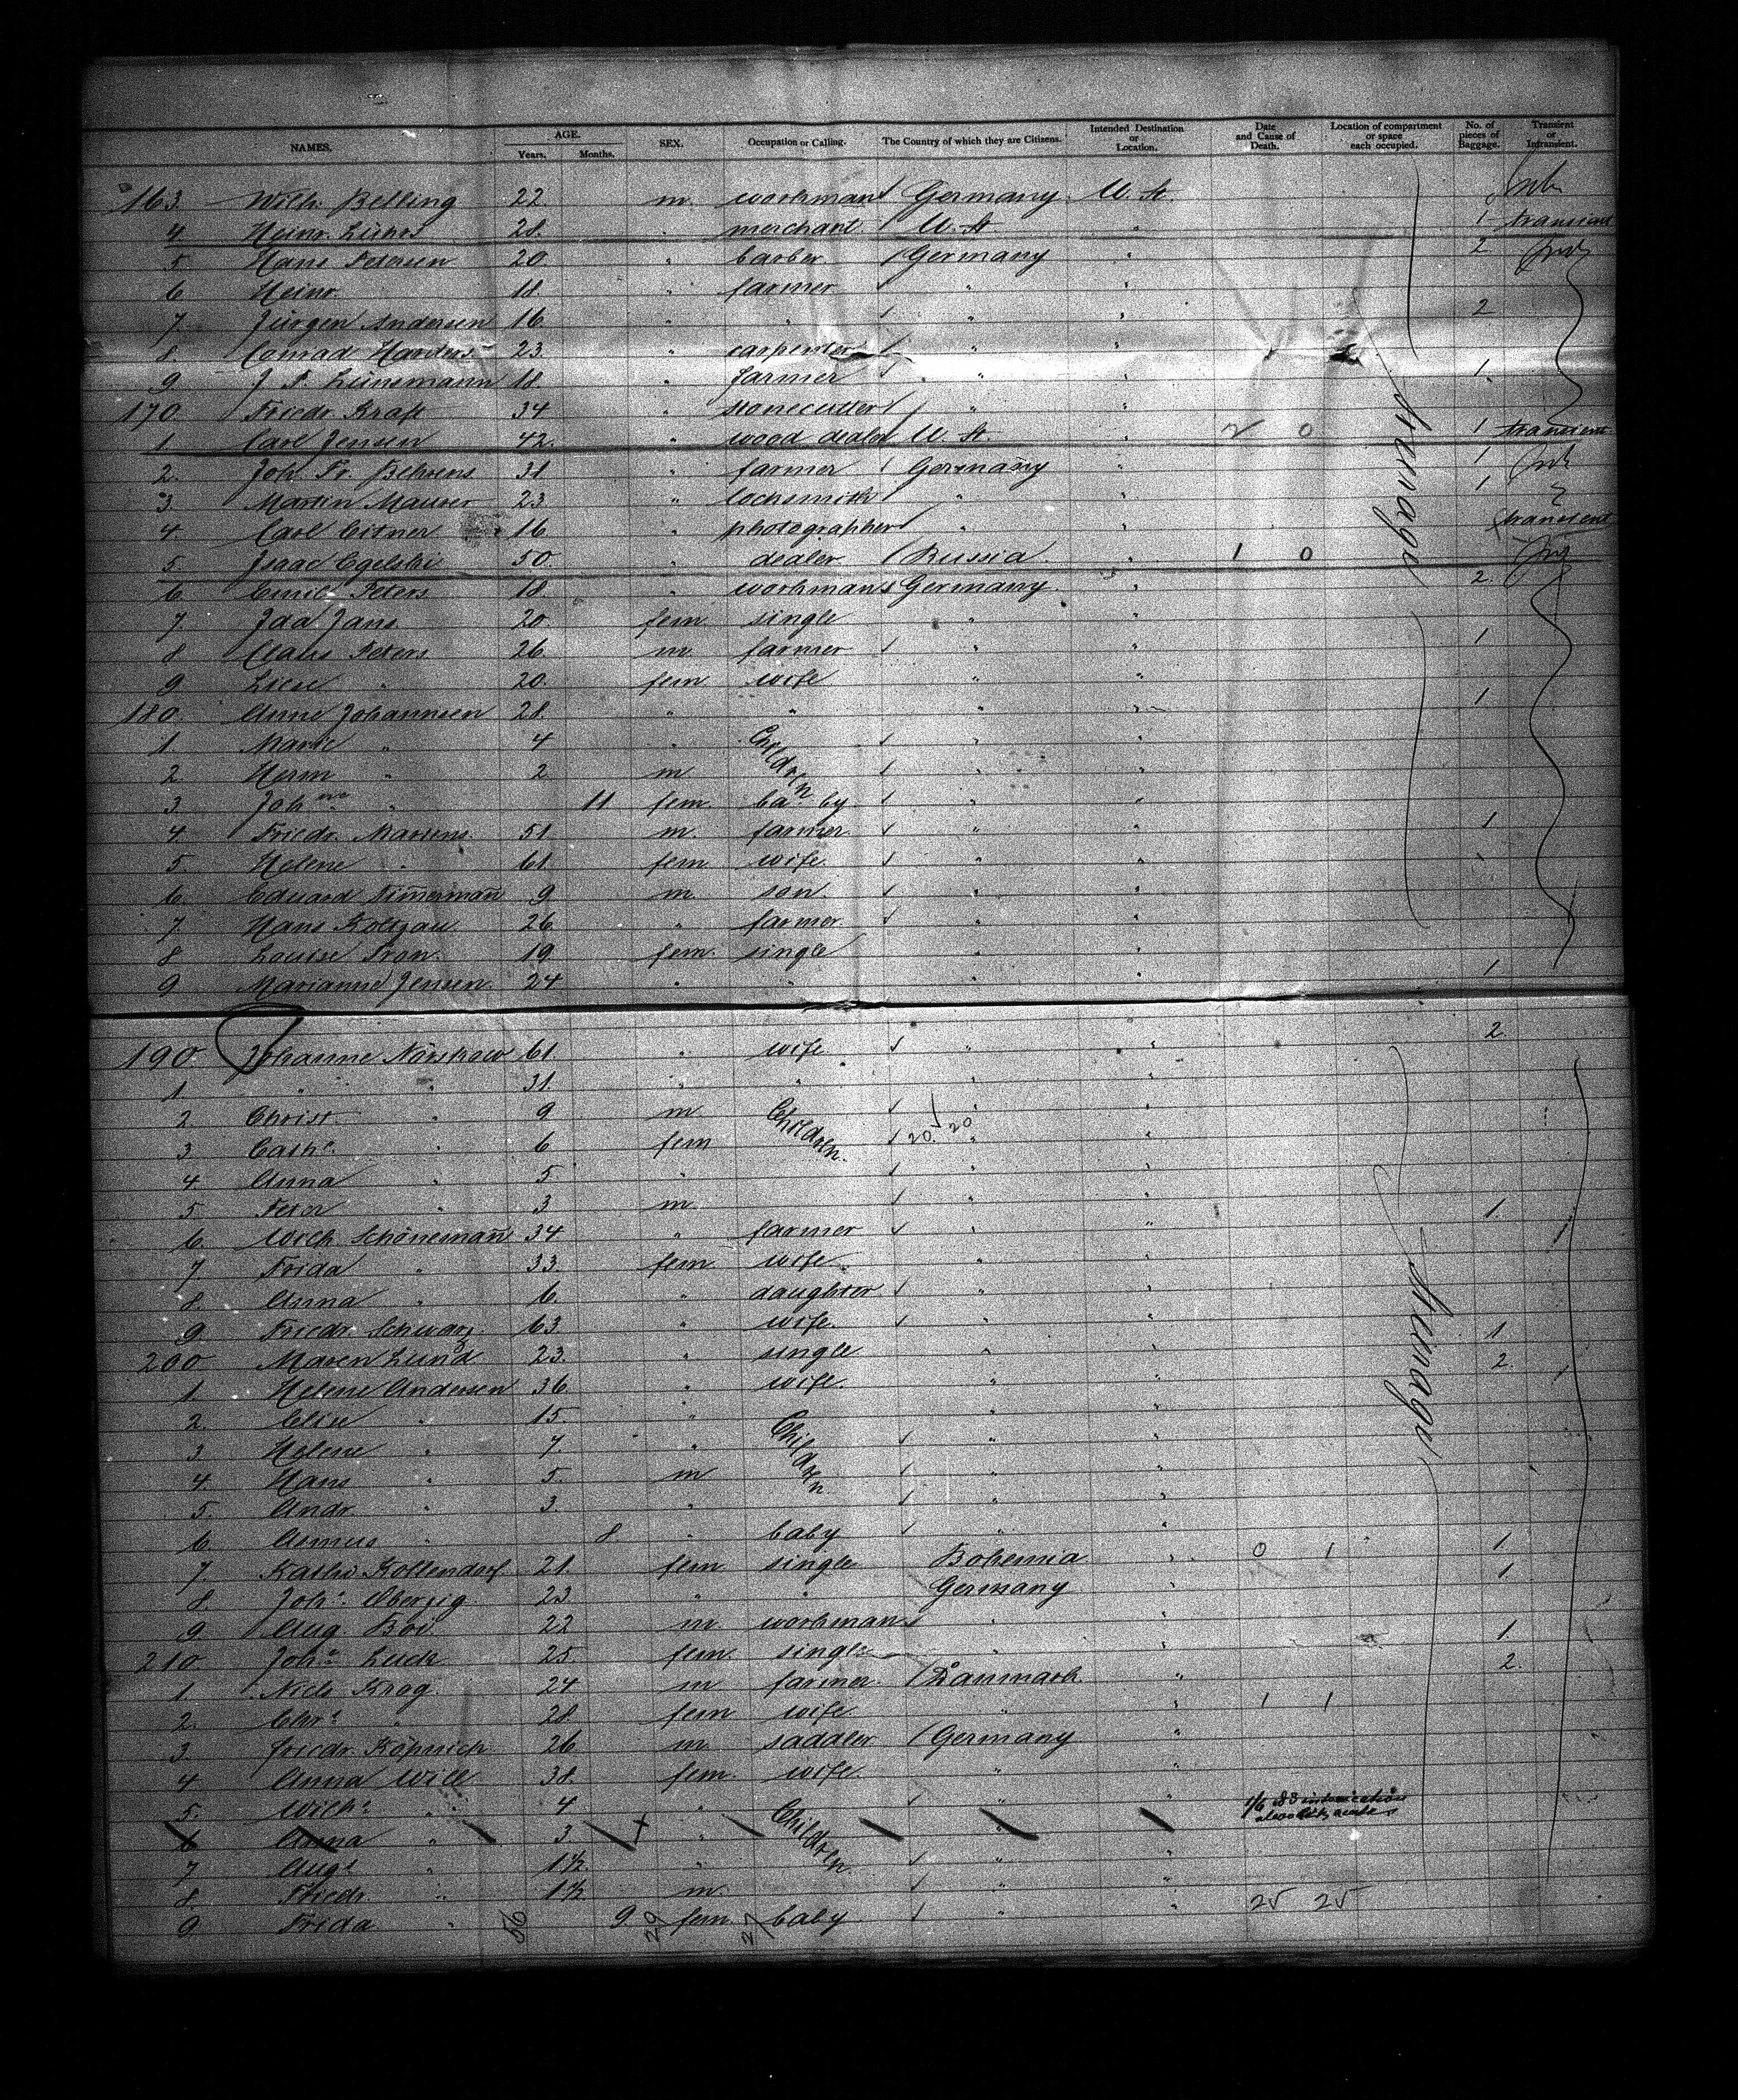 NAMES. AGE. Years. Months. SEX. Occupation or Calling. The Country of which they are Citizens. Intended Destination or Location. Date and Cause of Death. Location of compartment or space each occupied. No. of pieces of Baggage. Transient or Intransient.
163. Wilh. Belling 22 m. workman Germany. U. St.
4. Heinr. 28. " merchant U. St. " 1 transient
5. Hans Petersen 20. " barber Germany " 2
6. Heinr. 18. " farmer " "
7. Jürgen Andersen 16 " " " " 2
8. Conrad Harders 23. " carpenter " "
9. J. F. Lünemann 18. " farmer " " 1.
170. Friedr. Kraft 34 " stonecutter " "
1. Carl Jensen 42. " wood dealer U. St. " 2 0 1 transient
2. Joh. Fr. Behrens 31 " farmer Germany " 1
3. Martin Maurer 23 " locksmith " " 1
4. Carl Citner 16 " photographer " " transient
5. Isaac Egelski 50. " dealer Russia " 1 0
6. Emil Peters 18. " workman Germany. " 2.
7. Ida Jans 20. fem. single " "
8. Claus Peters 26. m. farmer " " 1
9. Liese " 20. fem wife " "
180. Anne Johannsen 28. " " " " 1
1. Marie " 4 " Children " "
2. Herm " 2 m. " "
3. Joh " 11 fem. baby " "
4. Friedr. Martens 51. m. farmer " " 1
5. Helene " 61. fem. wife. " "
6. Eduard Tim̅erman̅ 9. m. son. " "
7. Hans Koltzau 26 " farmer. " "
8. Louise Fran. 19. fem. single " "
9. Marianne Jensen. 24 " " " " 1
190. Johanne Närskow 61. " wife " " 2.
1. " " 31. " " " "
2. Christ. " 9 m Children. " "
3. Cath. " 6 fem 20. 20 " "
4. Anna " 5. " " "
5. Peter " 3 m. " " 1
6. Wilh. Schöneman̅ 34. " farmer " "
7. Frida " 33. fem. wife. " "
8. Anna " 6. " daughter " "
9. Friedr. Schwarz 63. " wife. " " 1
200 Maren Lund 23. " single " " 2.
1. Helene Andersen 36. " wife. " "
2. Elise " 15. " Children " "
3. Helene " 7. " " "
4. Hans " 5. m " "
5. Andr. " 3. " " "
6. Asmus " 8 " baby " "
7. Kathr. Kollendorf 21. fem. single Bohemia " 0 1 1.
8. Joh. Oberzig 23 " " Germany " 1.
9. Aug. Boi. 22 m. workman " "
210. Joh. 25. fem. single " " 1.
1. Nich. Krog. 24 m farmer. Danmark. " 2.
2. Chr. " 28. fem wife " " 1 1
3. Friedr. Köpnick 26. m. saddler Germany "
4. Anna Will 38. fem. wife. " "
5. Wilh. " 4 " Children " "
6 Anna " 3 " " 1/6 83 intoxication acute
7. Aug. " 1½. " " "
8. Friedr. " 1½. m. " " 25 25
9. Frida " 9 fem. baby " "
56 29 27
Steerage
Steerage